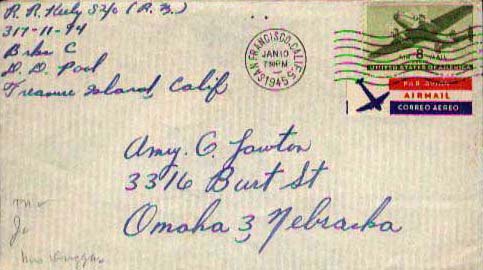 R. R. Keely S2/c (R. B.)
317-11-94
Bks C
D. D. Pool
Treasure Island Calif
SAN FRANCISCO, CALIF. 5
JAN 10
7 30 PM
1945
AIR 8 MAIL
UNITED STATES OF AMERICA
PAR AVION
AIRMAIL
CORREO AEREO
Amy. C. Lawton
3316 Burt St
Omaha 3, Nebraska